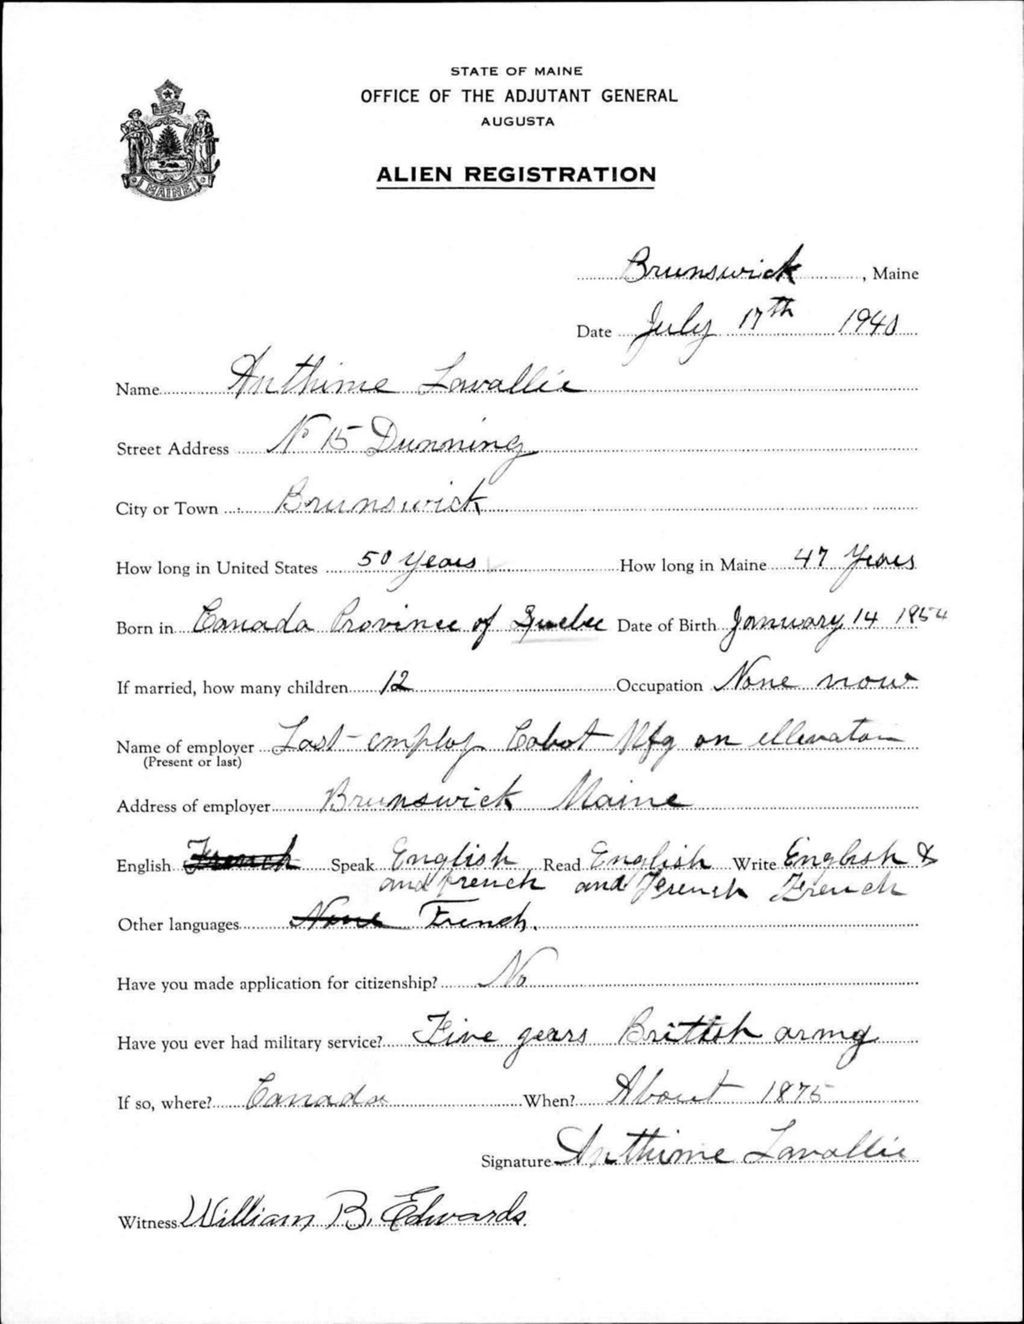 STATE OF MAINE
OFFICE OF THE ADJUTANT GENERAL
AUGUSTA
ALIEN REGISTRATION
MAINE
Brunswick, Maine
Date July 17th 1940
Name Anthime Lavallie
Street Address No 15 Dunning
City or Town Brunswick
How long in United States 50 years How long in Maine 47 Years
Born in Canada Province of Quebec Date of Birth January 14 1854
If married, how many children 12 Occupation None now
Name of employer Last employ Cabot Mfg on ellevator
(Present or last)
Address of employer Brunswick Maine
English French Speak English Read English Write English &
and french and French French
Other languages None French.
Have you made application for citizenship? No
Have you ever had military service? Five years Brittish army
If so, where? Canada When? About 1875
Signature Anthime Lavallie
Witness William B. Edwards